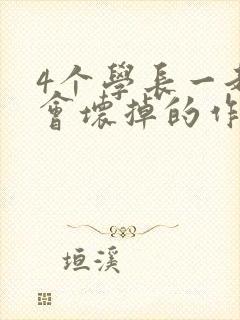 4个學長一
會壞掉的作
垣溪